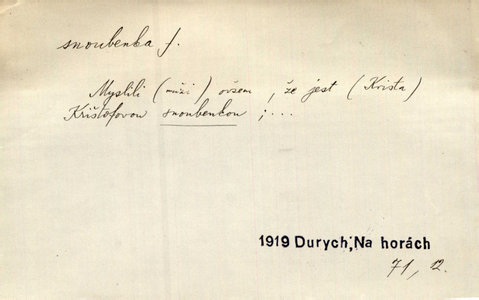 snoubenka f.
Myslili (muži) ovšem, že jest (Krista)
Krištofovou snoubenkou ; ...
1919 Durych, Na horách
71, 12.